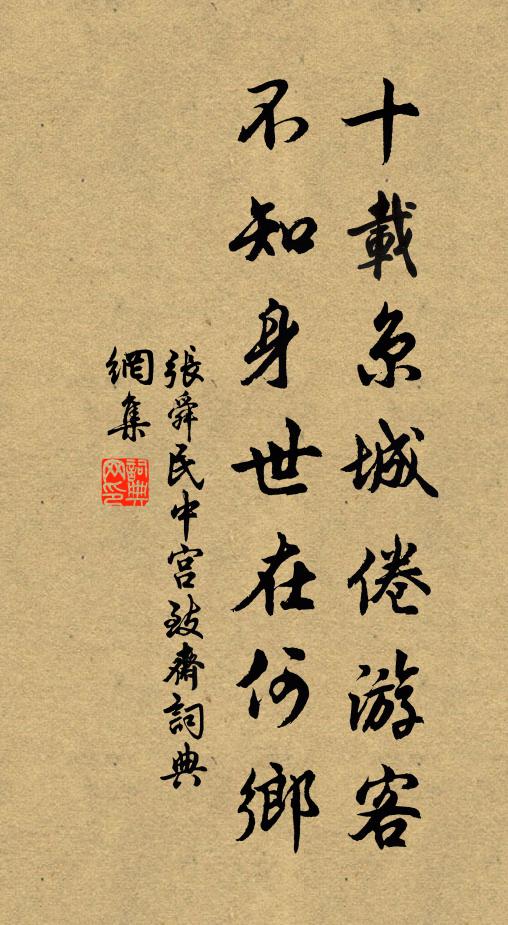 十載京城倦游客
不知身世在何鄉
張舜民中宮致齋詞典
網集
詞典
網印